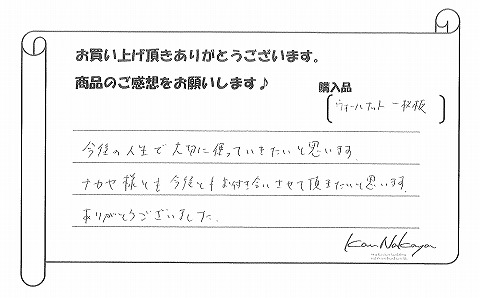 お買い上げ頂きありがとうございます。
商品のご感想をお願いします♪
購入品
ウォールナット 一枚板
今後の人生で大切に使っていきたいと思います。
ナカヤ様とも今後ともお付き合いさせて頂きたいと思います。
ありがとうございました。
Kan Nakaya